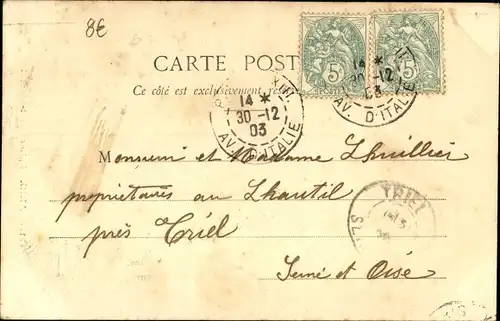 8€
CARTE POST
Ce côté est exclusivement rése
5
5
14 *
30-12
03
AV. D'ITALIE
14 *
30-12
03
AV. D'ITALIE
Monsieur et Madame Lhuillier
propriétaires au Lhautil
près Triel
Seine et Oise
TRIEL